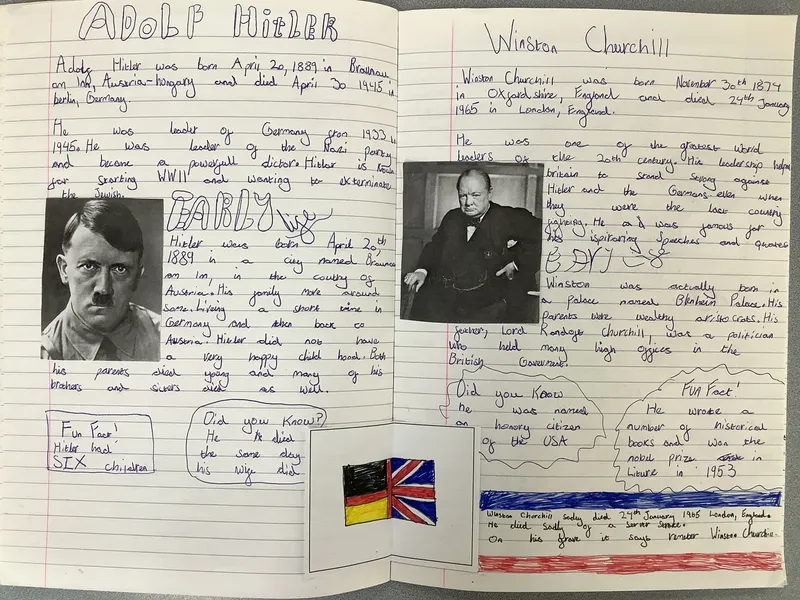 ADOLF HITLER
Adolf Hitler was born April 20, 1889 in Braunau
am Inn, Austria-Hungary and died April 30 1945 in
berlin, Germany.
He was leader of Germany from 1933
1945. He was leader of the Nazi party
and became a powerfull dictor. Hitler is
for starting WWII and wanting to exterminate
the Jewish.
EARLY life
Hitler was born April 20th
1889 in a city named Braunau
am Inn, in the coutry of
Austria. His family move around
some. Living a short time in
Germany and then back to
Austria. Hitler did not have
a very happy child hood. Both
his parents died young and many of his
brothers and sisters died as well.
Fun Fact!
Hitler had
SIX children
Did you Know?
He died
the same day
his wife did
Winston Churchill
Winston Churchill was born November 30th 1874
in Oxfordshire, England and died 24th January
1965 in London, England.
He was one of the greatest world
leaders of the 20th century. His leadership
britain to stand strong against
Hitler and the Germans even when
they were the last country
fighting. He was famous for
his ispiring speeches and quotes
Winston was actually born in
a palace named Blenheim Palace. His
parents were wealthy aristocrats. His
father, Lord Randolf Churchill, was a politician
who held many high offices in the
British Goverment.
Did you Know
he was named
an honory citizen
of the USA
Fun Fact!
He wrote a
number of historical
books and won the
nobel prize in
in 1953
Winston Churchill sadly died 24th January 1965 London, England.
He died sadly of a
On his grave it says Winston Churchill.